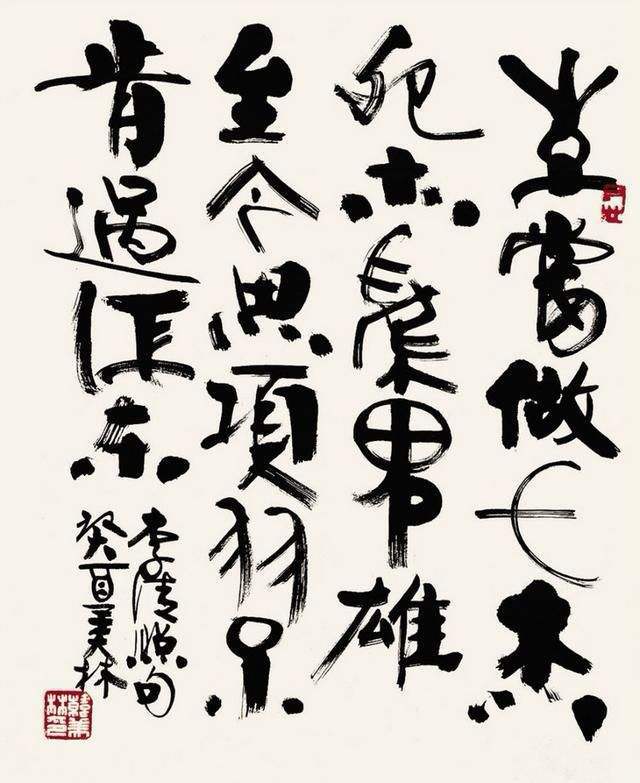 生當做人杰
死亦為鬼雄
至今思項羽不
肯過江东
李清照句
癸酉美林
韓美林印